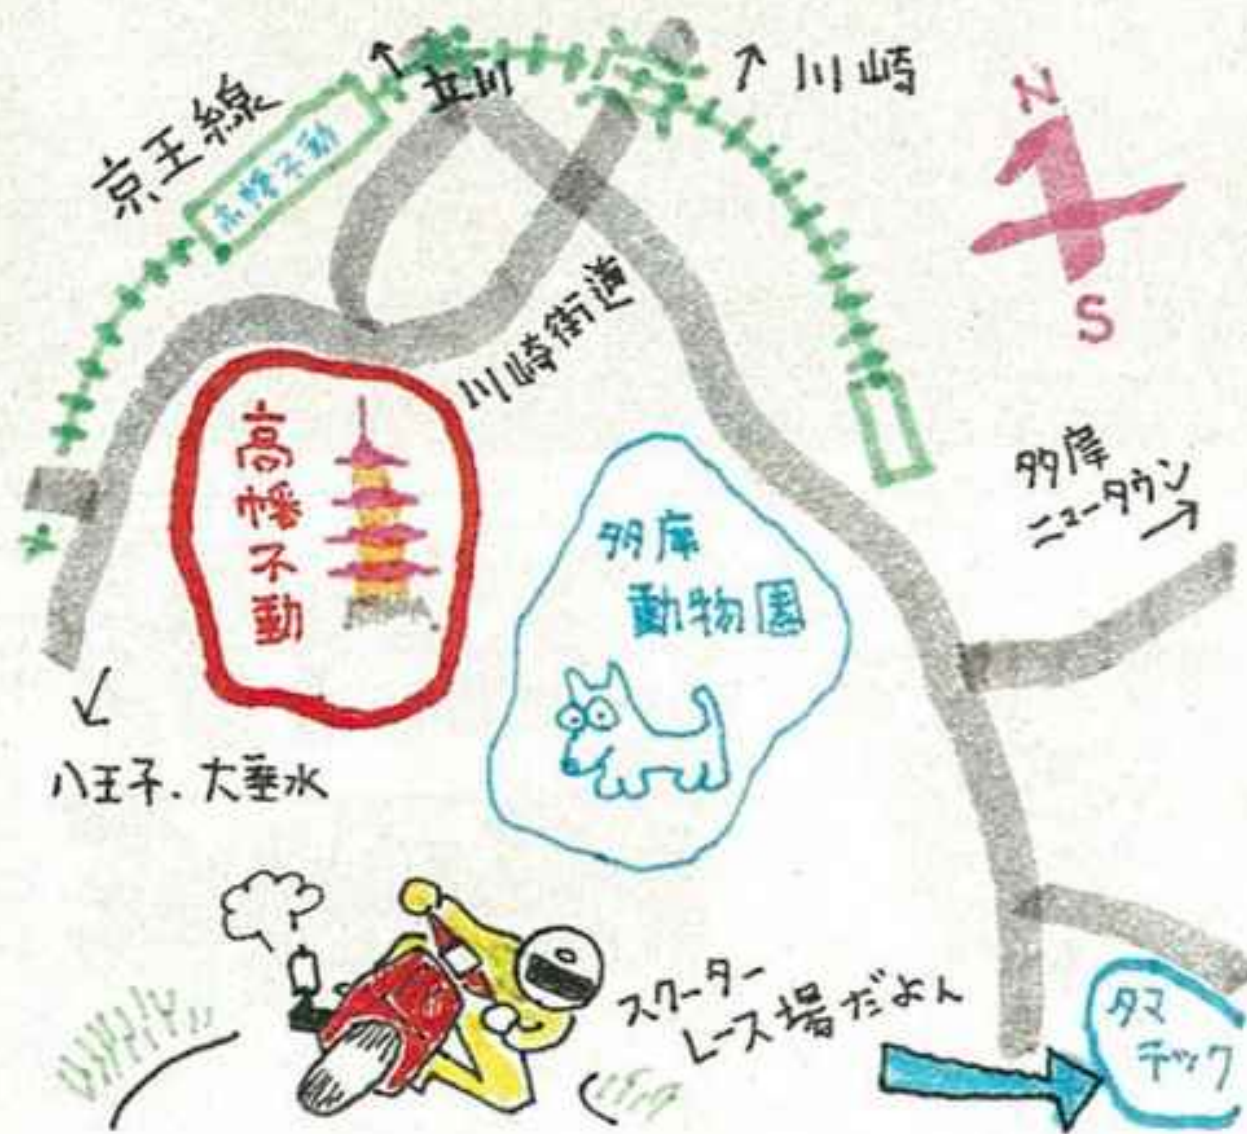 立川
川崎
京王線
高幡不動
N
S
川崎街道
高幡不動
多摩
動物園
多摩
ニュータウン
八王子、大垂水
スクーター
レース場だよん
タマ
テック